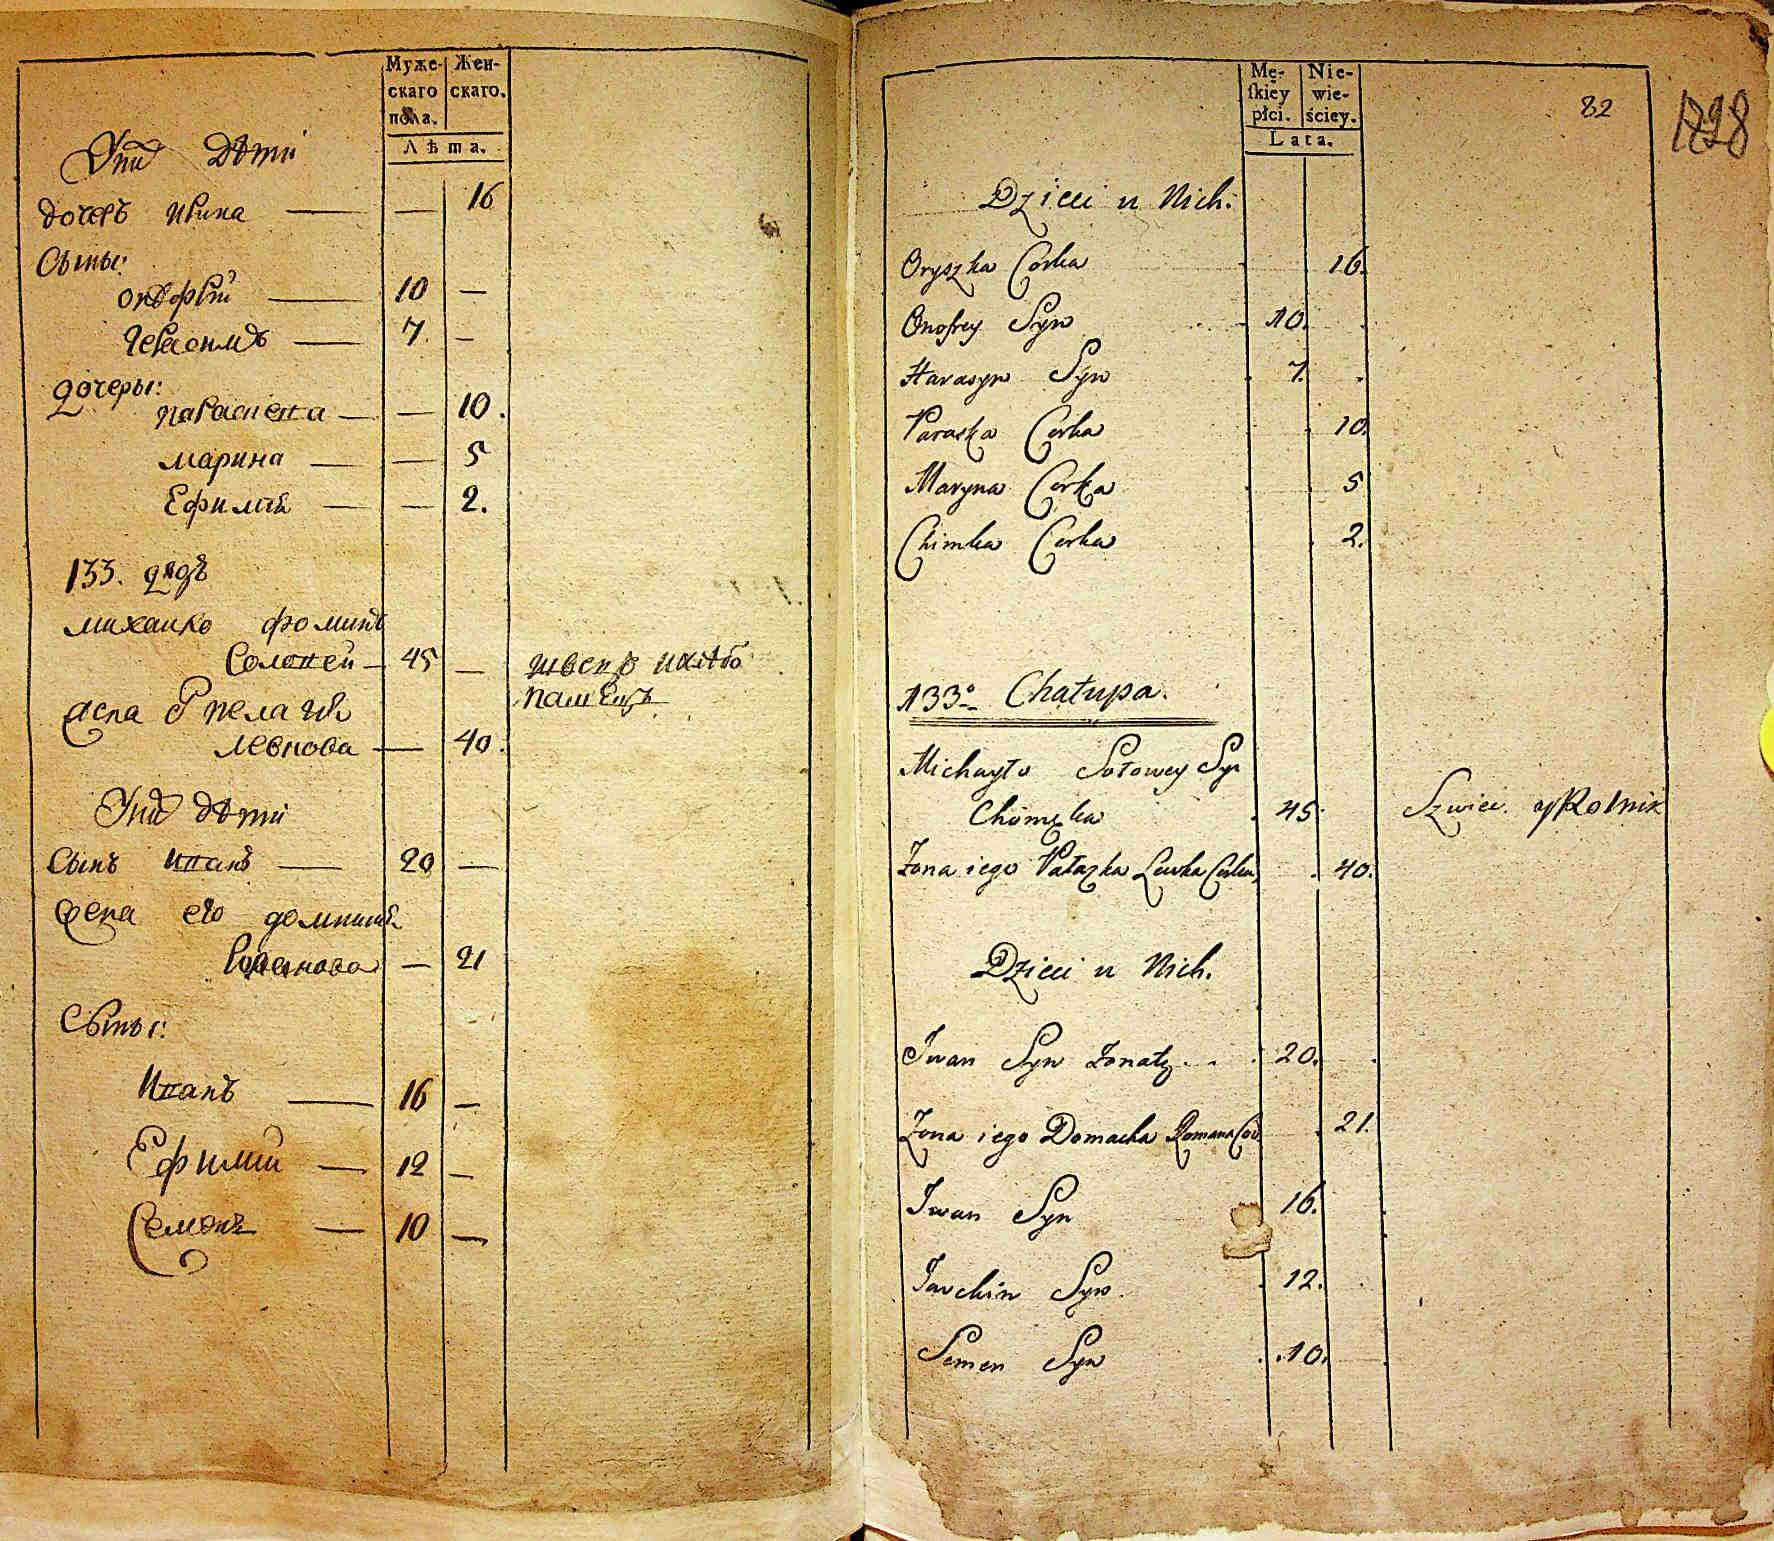 Муже-
скаго
пола.
Жен-
скаго.
Лѣта.
У нихъ Дѣти
дочерь Ирина — — 16
Сыны:
Онофрій — 10 —
Герасимъ — 7 —
дочеры:
параскева — — 10.
марина — — 5
Ефимія — — 2.
133. дядъ
михайло фоминъ
Соловей — 45 —
швецъ ихлѣбо
пашецъ
пелагія
левкова — 40.
У нихъ дѣти
Сынъ Иванъ — 20 —
его домникия
Романова — 21
Сыны:
Иванъ — 16 —
Ефимій — 12 —
Семенъ — 10 —
Mę-
ſkiey
płci.
Nie-
wie-
ściey.
Lata.
82
1798
Dzieci u Nich.
Oryszka Corka 16.
Onofrey Syn 10.
Harasym Syn 7.
Paraska Corka 10.
Maryna Corka 5
Chimka Corka 2.
133o Chałupa.
Michayło Sołowey Syn
Chomęka 45.
Szwiec y Rolnik
Żona iego Pałazka Lewka Corka 40.
Dzieci u Nich.
Iwan Syn Żonaty 20.
Żona iego Domacha Romana Cor 21.
Iwan Syn 16.
Jawchim Syn 12.
Semen Syn 10.